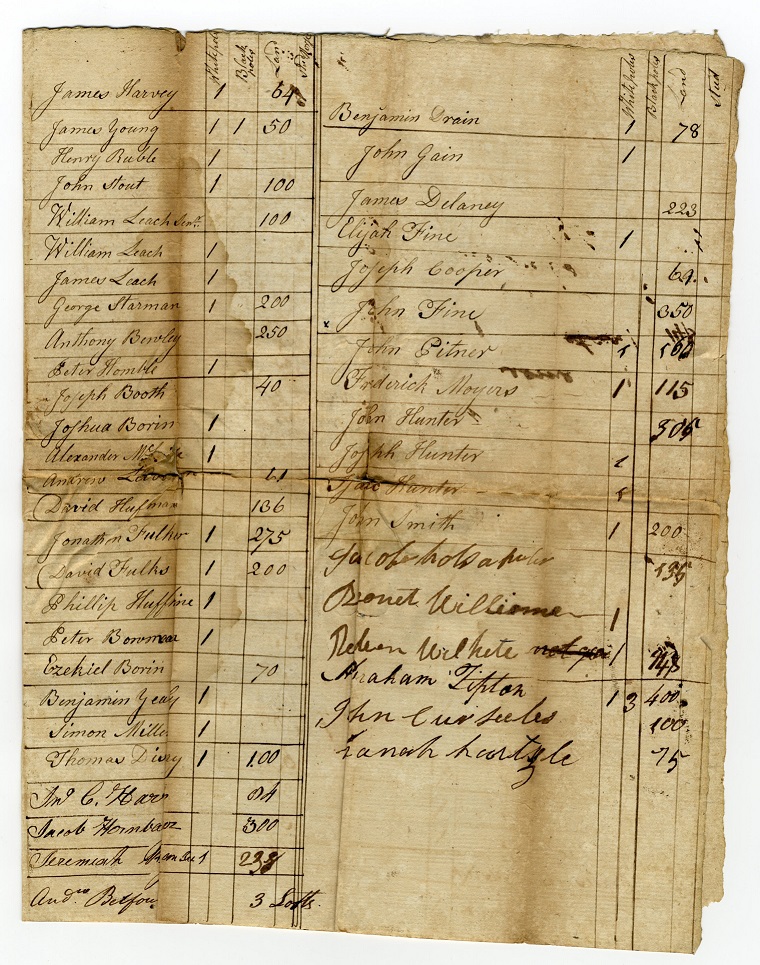 White polls Black polls Land Stud Horses
James Harvey 1 64
James Young 1 1 50
Henry Ruble 1
John Stout 1 100
William Leach Senr. 100
William Leach 1
James Leach 1
George Starman 1 200
Anthony Bewley 250
Peter Homble 1
Joseph Booth 40
Joshua Borin 1
Alexander 1
Andrew 61
David Huffman 136
Jonathn Fulker 1 275
David Fulks 1 200
Phillip Huffhine 1
Peter Bowman 1
Ezekiel Borin 70
Benjamin Yeary 1
Simon Mille 1
Thomas 1 100
Jno C. Harr 84
Jacob 300
Jeremiah 1
Andw 3 Lotts.
White polls Black polls Land Stud
Benjamin Drain 1 78
John Gain 1
James Delaney 223
Elijah Fine 1
Joseph Cooper 64
John Fine 350
John Pitner 1
Frederick Moyers 1 115
John Hunter 305
Joseph Hunter 1
Hunter 1
John Smith 1 200
Jacob
1
Wilhite 1
Abraham Tipton 1 3 400
Jhn 100
75